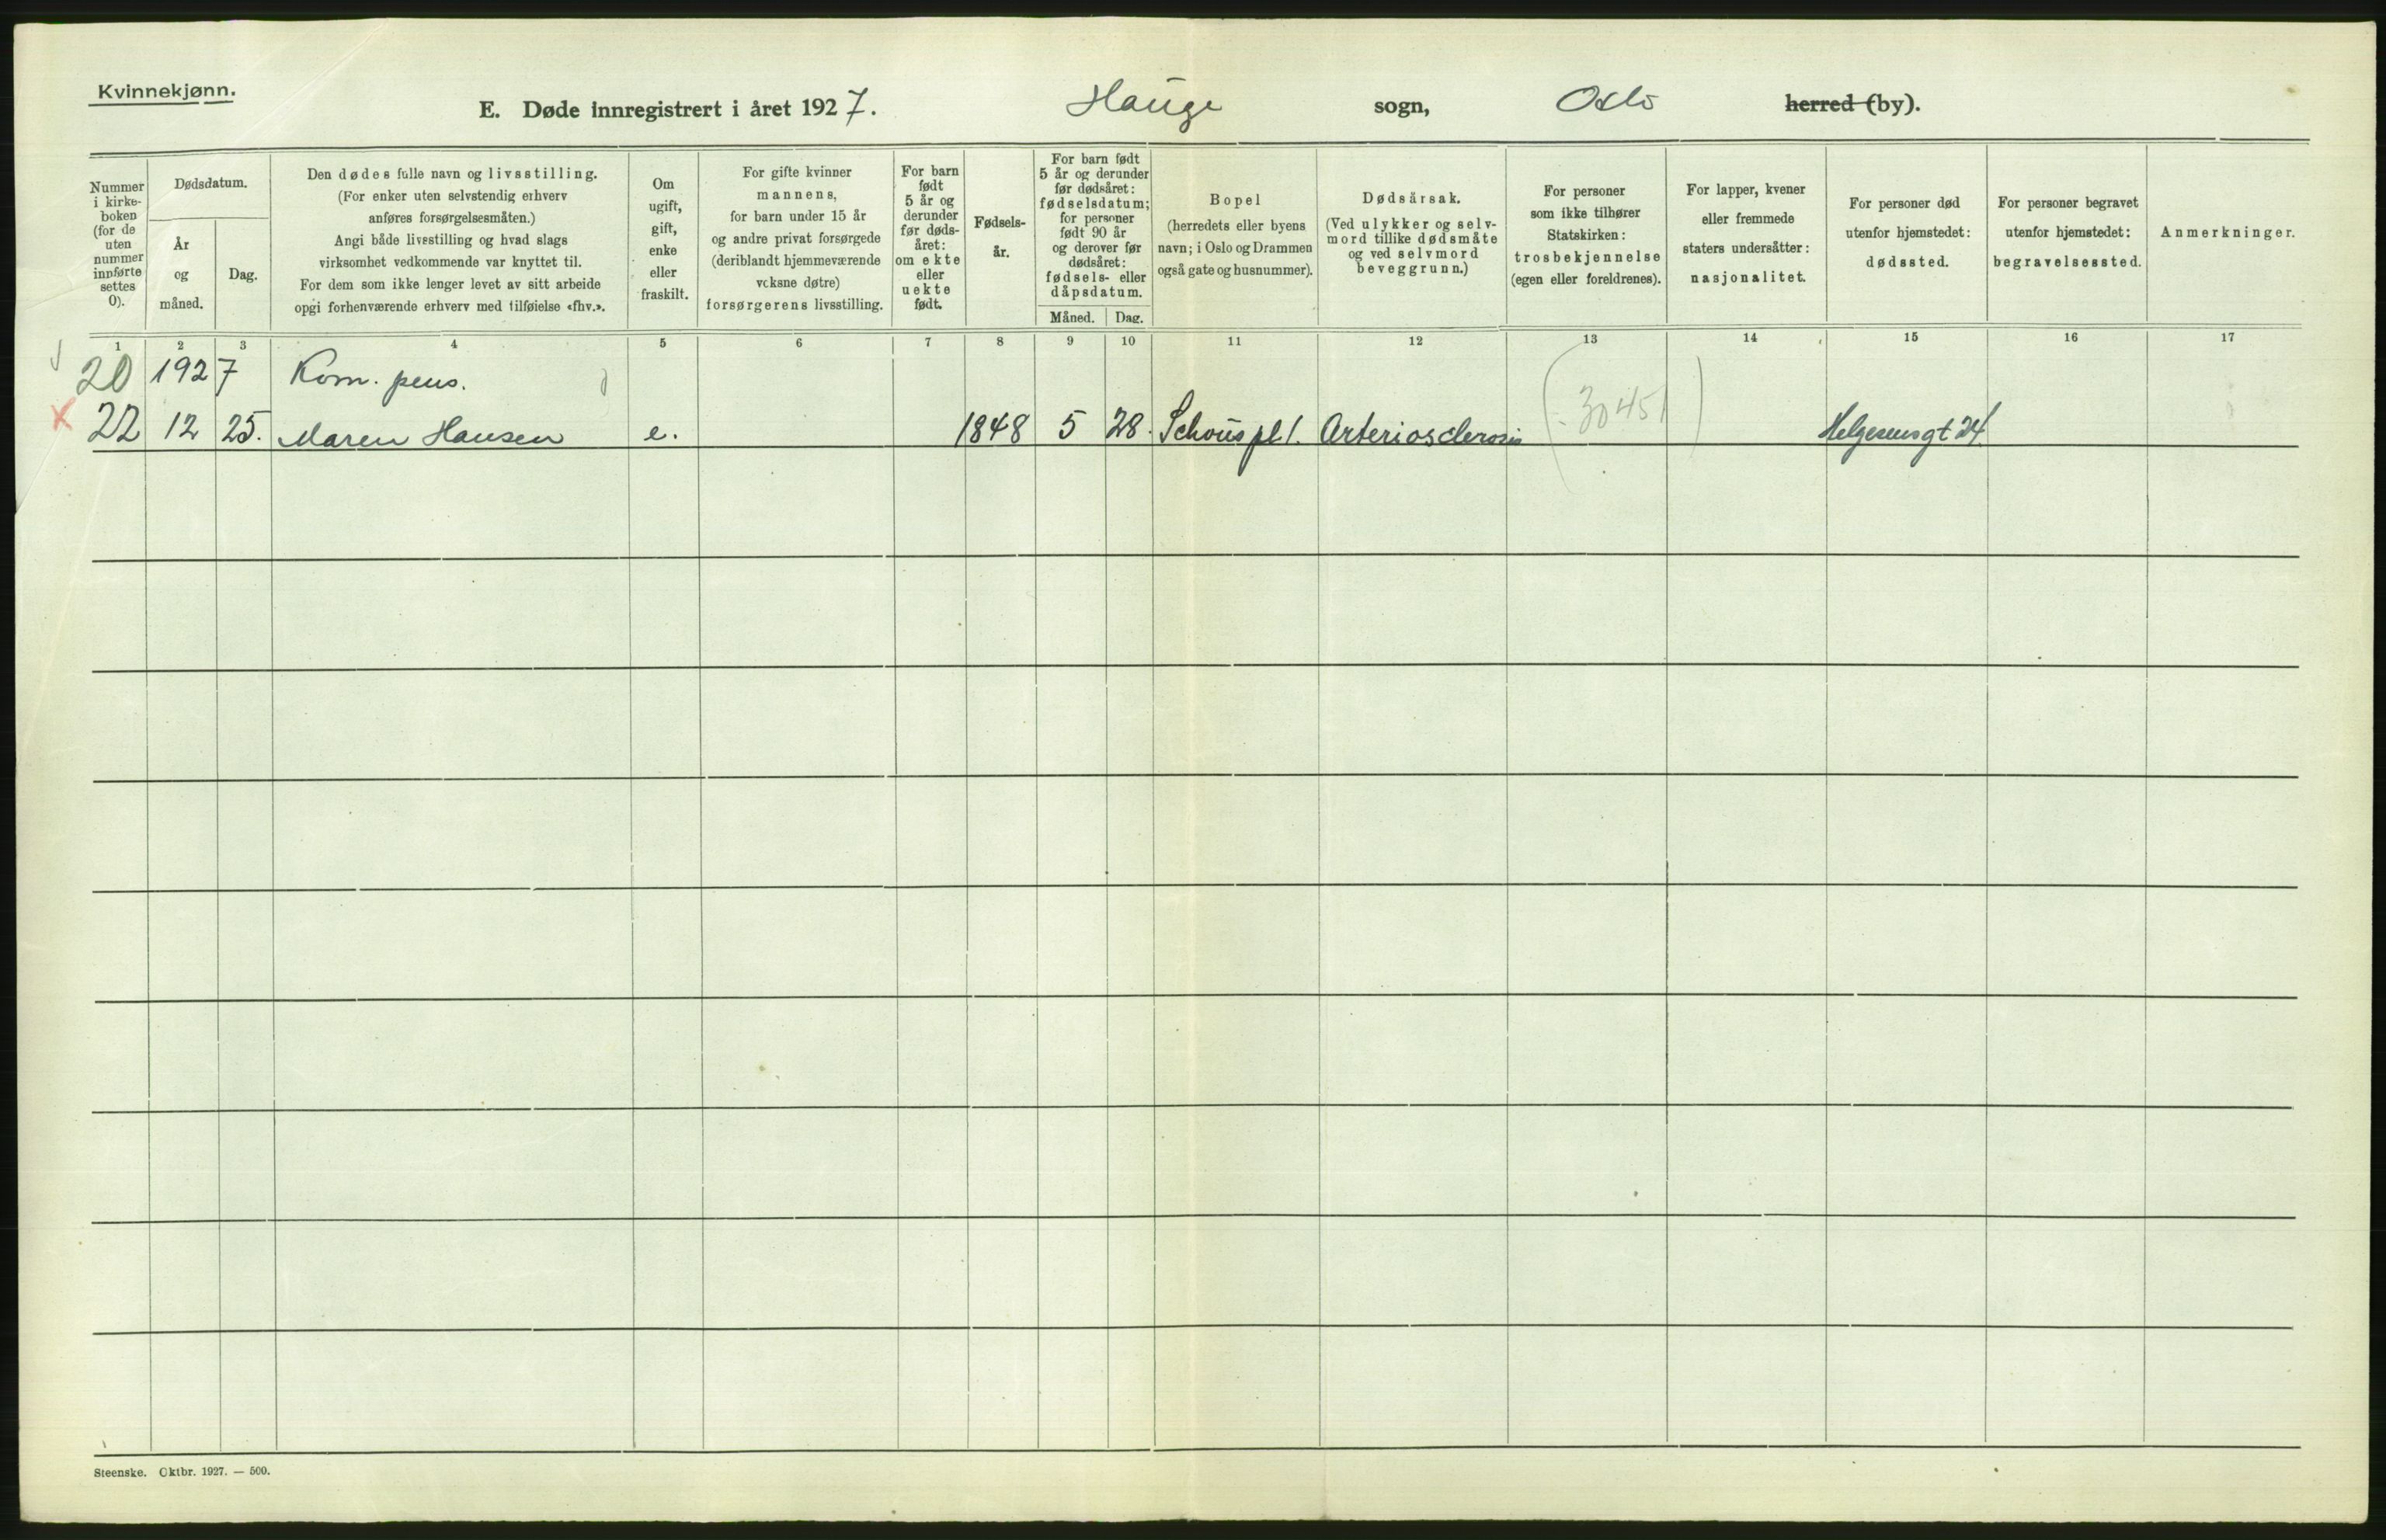 Kvinnekjønn.
E. Døde innregistrert i året 1927. Hauge sogn, Oslo herred (by).
Nummer
i kirke-
boken
(for de
uten
nummer
innførte
settes
0).
Dødsdatum.
År
og
måned.
Dag.
Den dødes fulle navn og livsstilling.
(For enker uten selvstendig erhverv
anføres forsørgelsesmåten.)
Angi både livsstilling og hvad slags
virksomhet vedkommende var knyttet til.
For dem som ikke lenger levet av sitt arbeide
opgi forhenværende erhverv med tilføielse «fhv.».
Om
ugift,
gift,
enke
eller
fraskilt.
For gifte kvinner
mannens,
for barn under 15 år
og andre privat forsørgede
(deriblandt hjemmeværende
voksne døtre)
forsørgerens livsstilling.
For barn
født
5 år og
derunder
før døds-
året:
om ekte
eller
uekte
født.
Fødsels-
år.
For barn født
5 år og derunder
før dødsåret:
fødselsdatum;
for personer
født 90 år
og derover før
dødsåret:
fødsels- eller
dåpsdatum.
Måned. Dag.
Bopel
(herredets eller byens
navn; i Oslo og Drammen
også gate og husnummer).
Dødsårsak.
(Ved ulykker og selv-
mord tillike dødsmåte
og ved selvmord
beveggrunn.)
For personer
som ikke tilhører
Statskirken:
trosbekjennelse
(egen eller foreldrenes).
For lapper, kvener
eller fremmede
staters undersåtter:
nasjonalitet.
For personer død
utenfor hjemstedet:
dødssted.
For personer begravet
utenfor hjemstedet:
begravelsessted.
Anmerkninger.
1 2 3 4 5 6 7 8 9 10 11 12 13 14 15 16 17
20 1927 Kom. pens.
22 12 25. Maren Hansen e. 1848 5 28. Schous pl 1. Arteriosclerosis 30451 Helgesensgt 24.
Steenske. Oktbr. 1927. — 500.